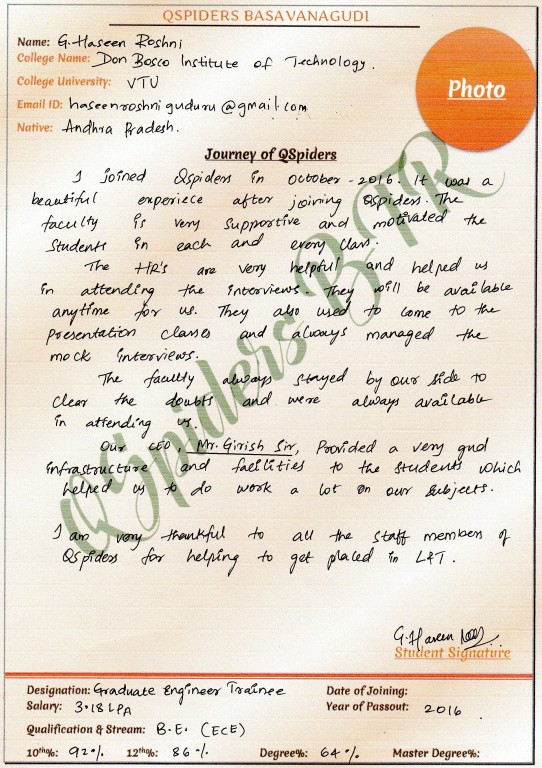 QSPIDERS BASAVANAGUDI
Name: G. Haseen Roshni
College Name: Don Bosco Institute of Technology.
College University: VTU
Email ID: haseenroshniguduru@gmail.com
Native: Andhra Pradesh.
Photo
Journey of QSpiders
I joined QSpiders in October-2016. It was a
beautiful experiece after joining QSpiders. The
faculty is very supportive and motivated the
students in each and every class.
The HR's are very helpful and helped us
in attending the interviews. They will be available
anytime for us. They also used to come to the
presentation classes and always managed the
mock interviews.
The faculty always stayed by our side to
clear the doubts and were always available
in attending us.
Our CEO, Mr. Girish Sir, Provided a very gud
infrastructure and facilities to the students which
helped us to do work a lot on our subjects.
I am very thankful to all the staff members of
QSpiders for helping to get placed in L&T.
QSpiders BTR
G. Haseen
Student Signature
Designation: Graduate Engineer Trainee
Date of Joining:
Salary: 3.18 LPA
Year of Passout: 2016
Qualification & Stream: B.E. (ECE)
10th%: 92% 12th%: 86% Degree%: 64% Master Degree%: